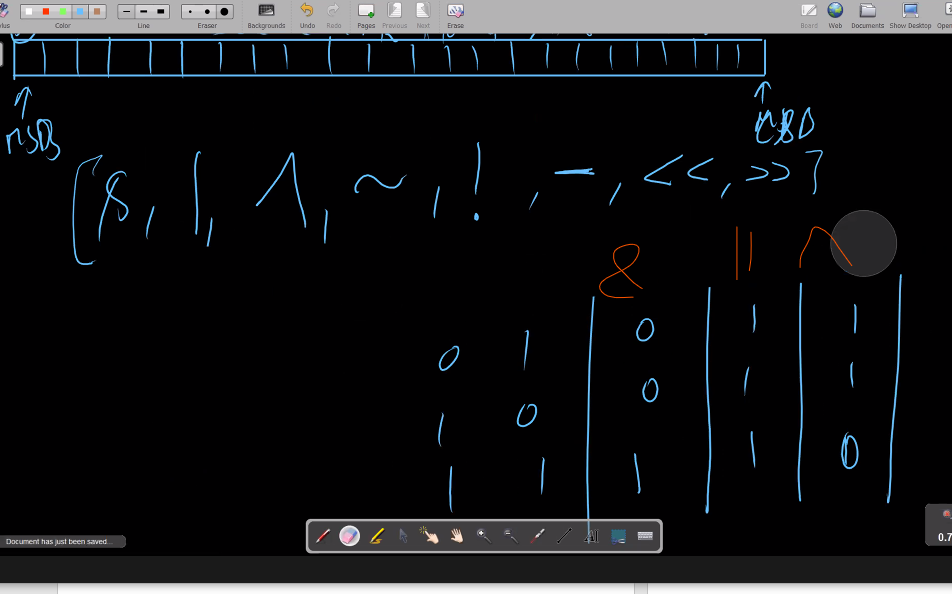 Color Line Eraser Backgrounds Undo Redo Pages Previous Next Erase Board Web Documents Show Desktop
MSB
[ &, |, ^, ~, !, -, <<, >> ]
& || ^
0 1 0 1 1
1 0 0 1 1
1 1 1 1 0
Document has just been saved...
0.7